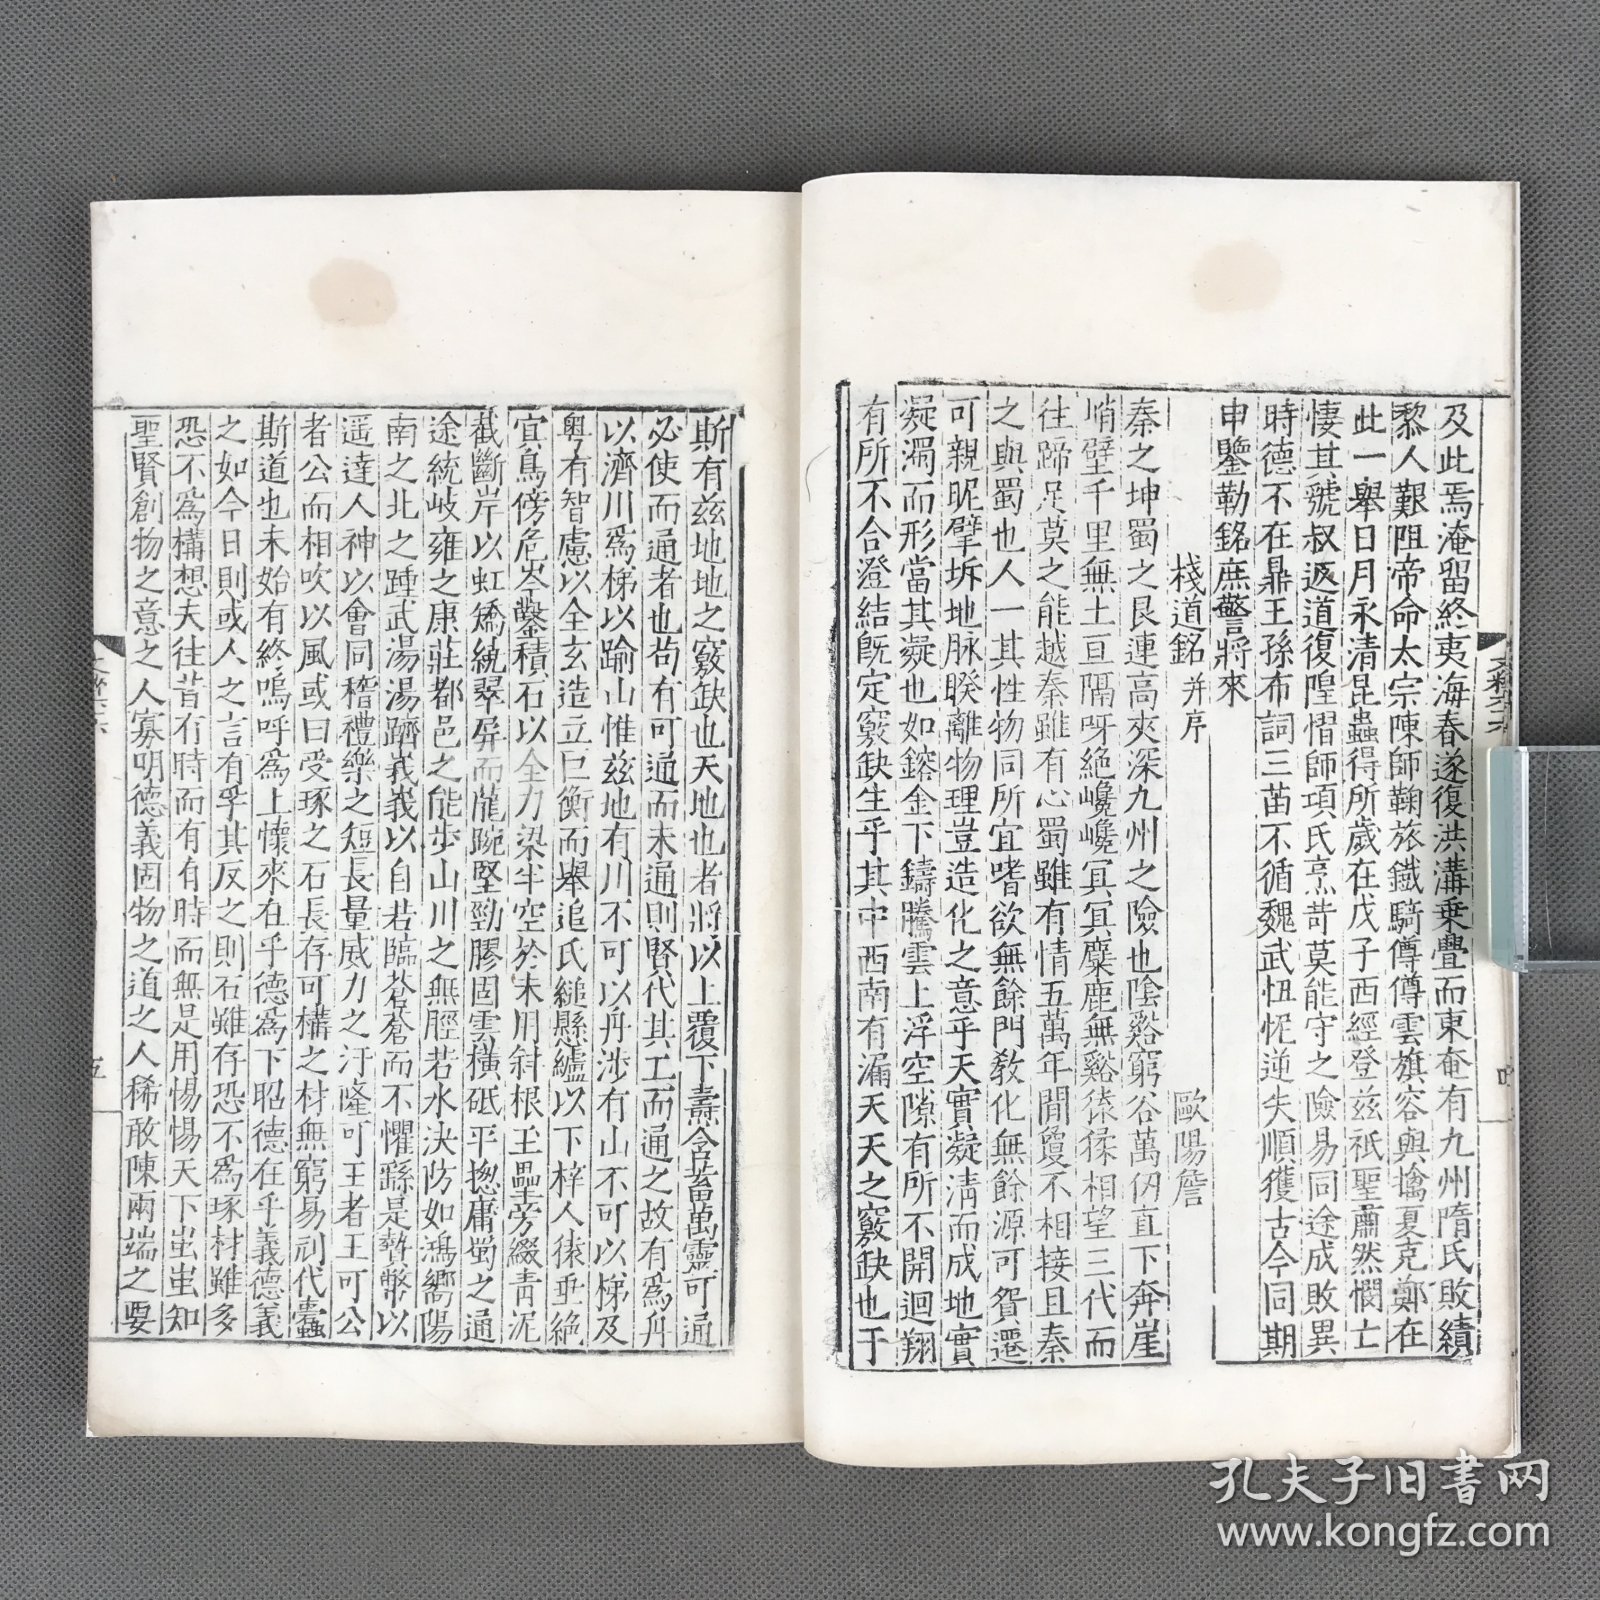 及此焉淹留終夷海春遂復洪溝乗疊而東奄有九州隋氏敗績
黎人艱阻帝命太宗陳師鞠旅鐵騎傅傅雲旗容與擒夏克鄭在
此一舉日月永清昆蟲得所歲在戊子西經登茲祇聖肅然憫亡
悽其虢叔返道復隍㦗師項氏烹苛莫能守之險易同途成敗異
時德不在鼎王孫布詞三苗不循魏武忸怩逆失順獲古今同期
申鑒勒銘庶警將來
棧道銘并序 歐陽詹
秦之坤蜀之艮連高夾深九州之險也陰谿窮谷萬仞直下奔崖
峭壁千里無土亘隔呀絶巉巉冥冥麋鹿無谿猿猱相望三代而
往蹄足莫之能越秦雖有心蜀雖有情五萬年間夐不相接且秦
之與蜀也人一其性物同所宜嗜欲無餘門教化無餘源可貿遷
可親昵擘坼地脉睽離物理豈造化之意乎天實凝淸而成地實
凝濁而形當其凝也如鎔金下鑄騰雲上浮空隙有所不開迴翔
有所不合澄結旣定竅缺生乎其中西南有漏天天之竅缺也于
斯有茲地地之竅缺也天地也者將以上覆下燾含蓄萬靈可通
必使而通者也苟有可通而未通則賢代其工而通之故有爲舟
以濟川爲梯以踰山惟茲地有川不可以舟涉有山不可以梯及
粤有智慮以全玄造立巨衡而舉追氏縋懸纑以下梓人猿垂絶
冝鳥傍危岑鑿積石以全力梁半空於未用斜根玉壘旁綴靑泥
截斷岸以虹矯繞翠屏而龍踠堅勁膠固雲橫砥平揔庸蜀之通
途統岐雍之康莊都邑之能步山川之無脛若水決防如鴻嚮陽
南之北之踵武湯湯躋義義以自若臨蒼蒼而不懼繇是贄幣以
遥達人神以會同稽禮樂之短長量威力之汙隆可王者王可公
者公而相吹以風或曰受琢之石長存可構之材無窮易刓代蠹
斯道也未始有終嗚呼爲上懷來在乎德爲下昭德在乎義德義
之如今日則或人之言有孚其反之則石雖存恐不爲琢材雖多
恐不爲構想夫往昔有時而有有時而無是用惕惕天下蚩蚩知
聖賢創物之意之人寡明德義固物之道之人稀敢陳兩端之要
五
孔夫子旧书网
www.kongfz.com